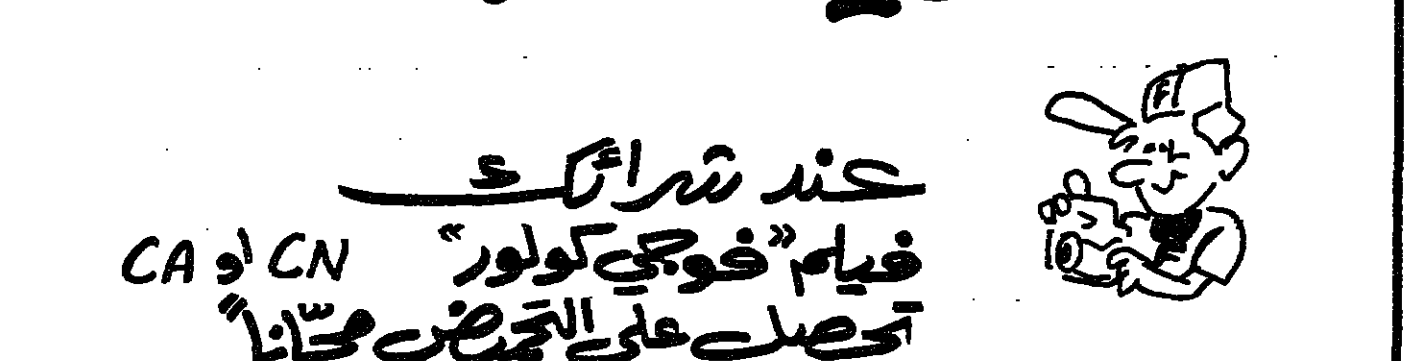 عند شرائك
فيلم «فوجي كولور» CN او CA
تحصل على التحميض مجّاناً